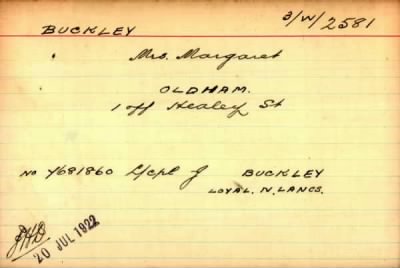 3/W/2581
BUCKLEY
Mrs. Margaret
OLDHAM.
1 off Healey St
No Y681860 L/cpl J BUCKLEY
LOYAL. N. LANCS.
20 JUL 1922